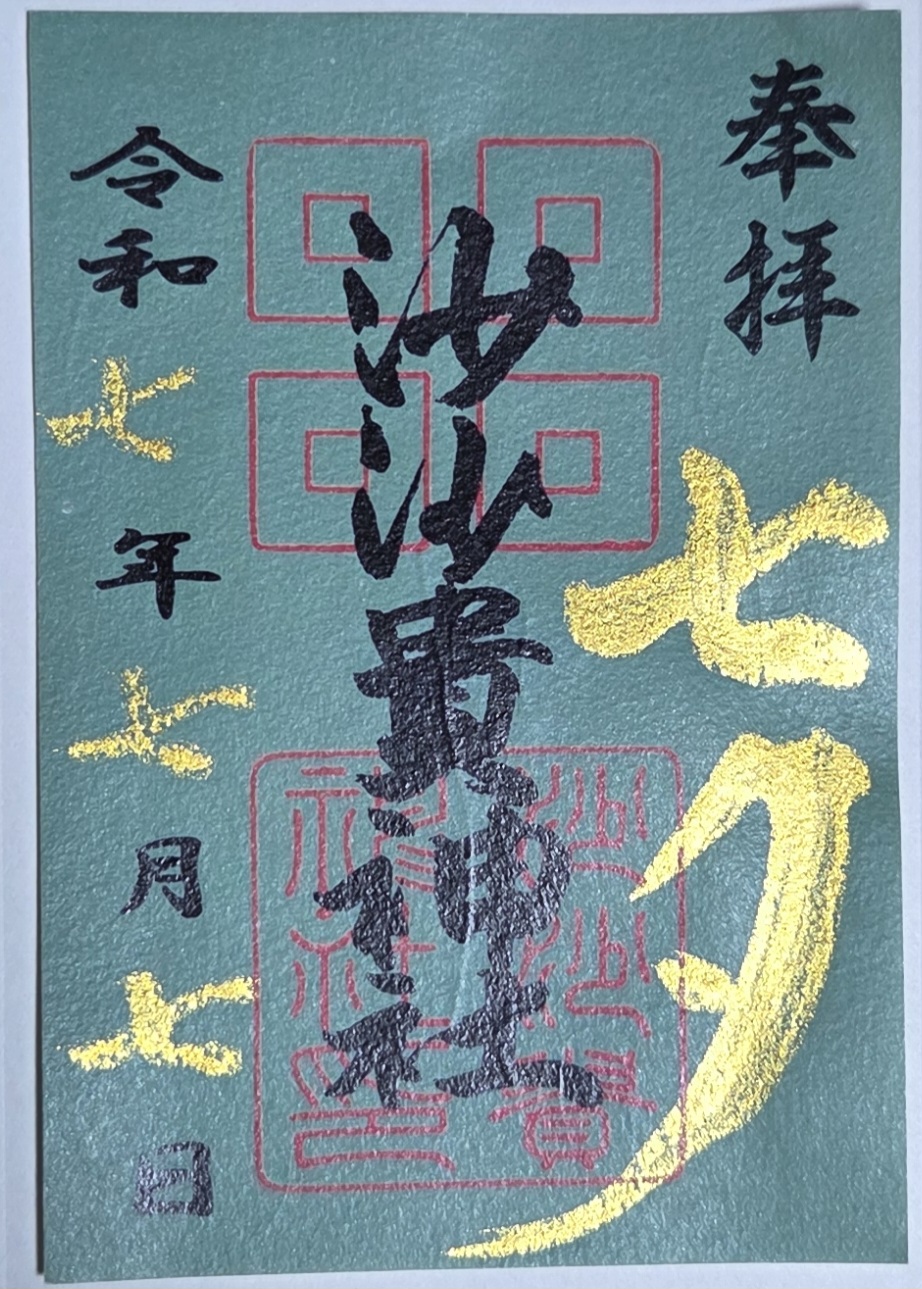 奉拝
七夕
沙沙貴神社
沙沙貴神社印
令和七年七月七日